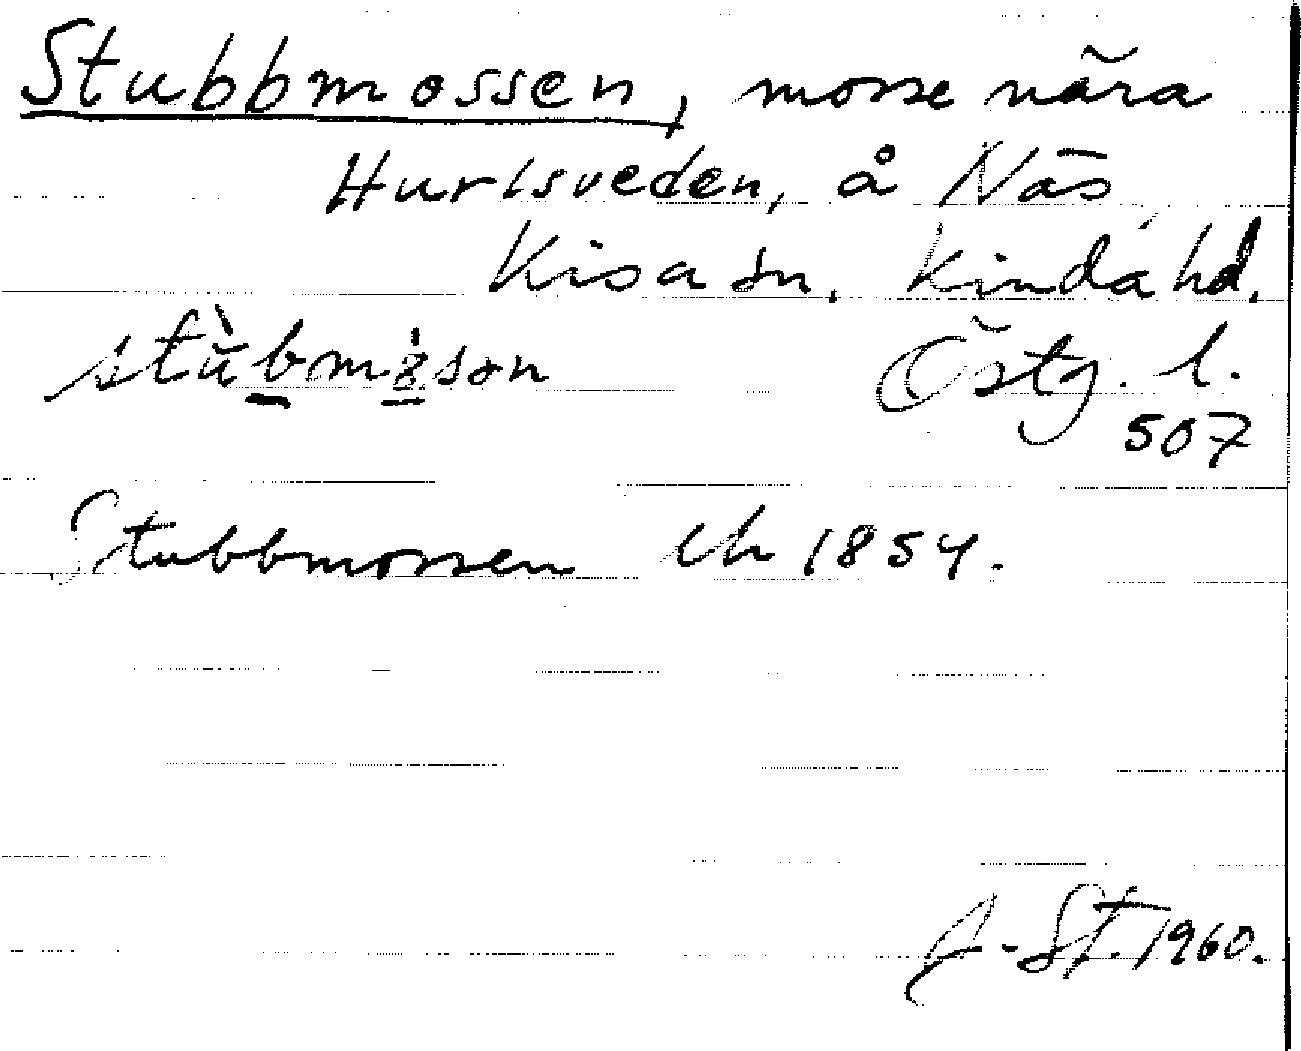 Stubbmossen, mosse nära
Hurlsveden, å Näs,
Kisa sn. Kinda hd.
Östg. l.
507
Stubbmossen Ch 1854.
A-St. 1960.